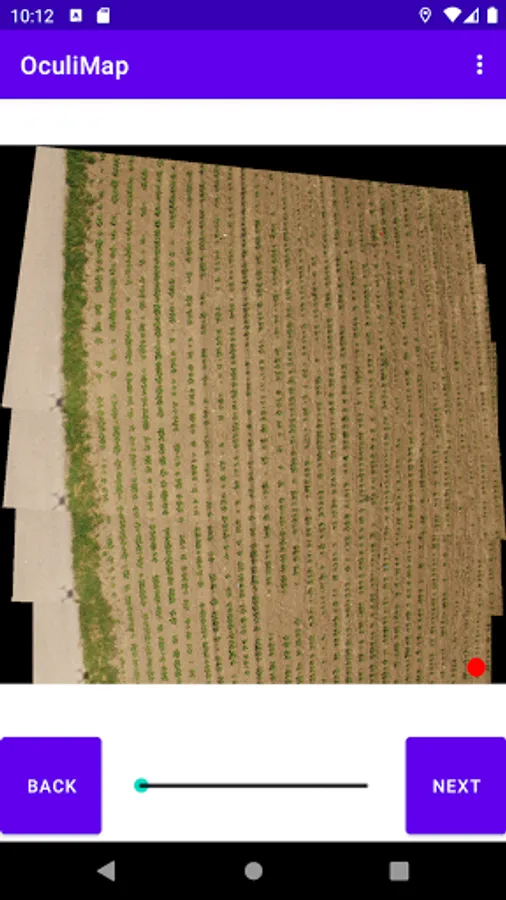 10:12
OculiMap
BACK
NEXT